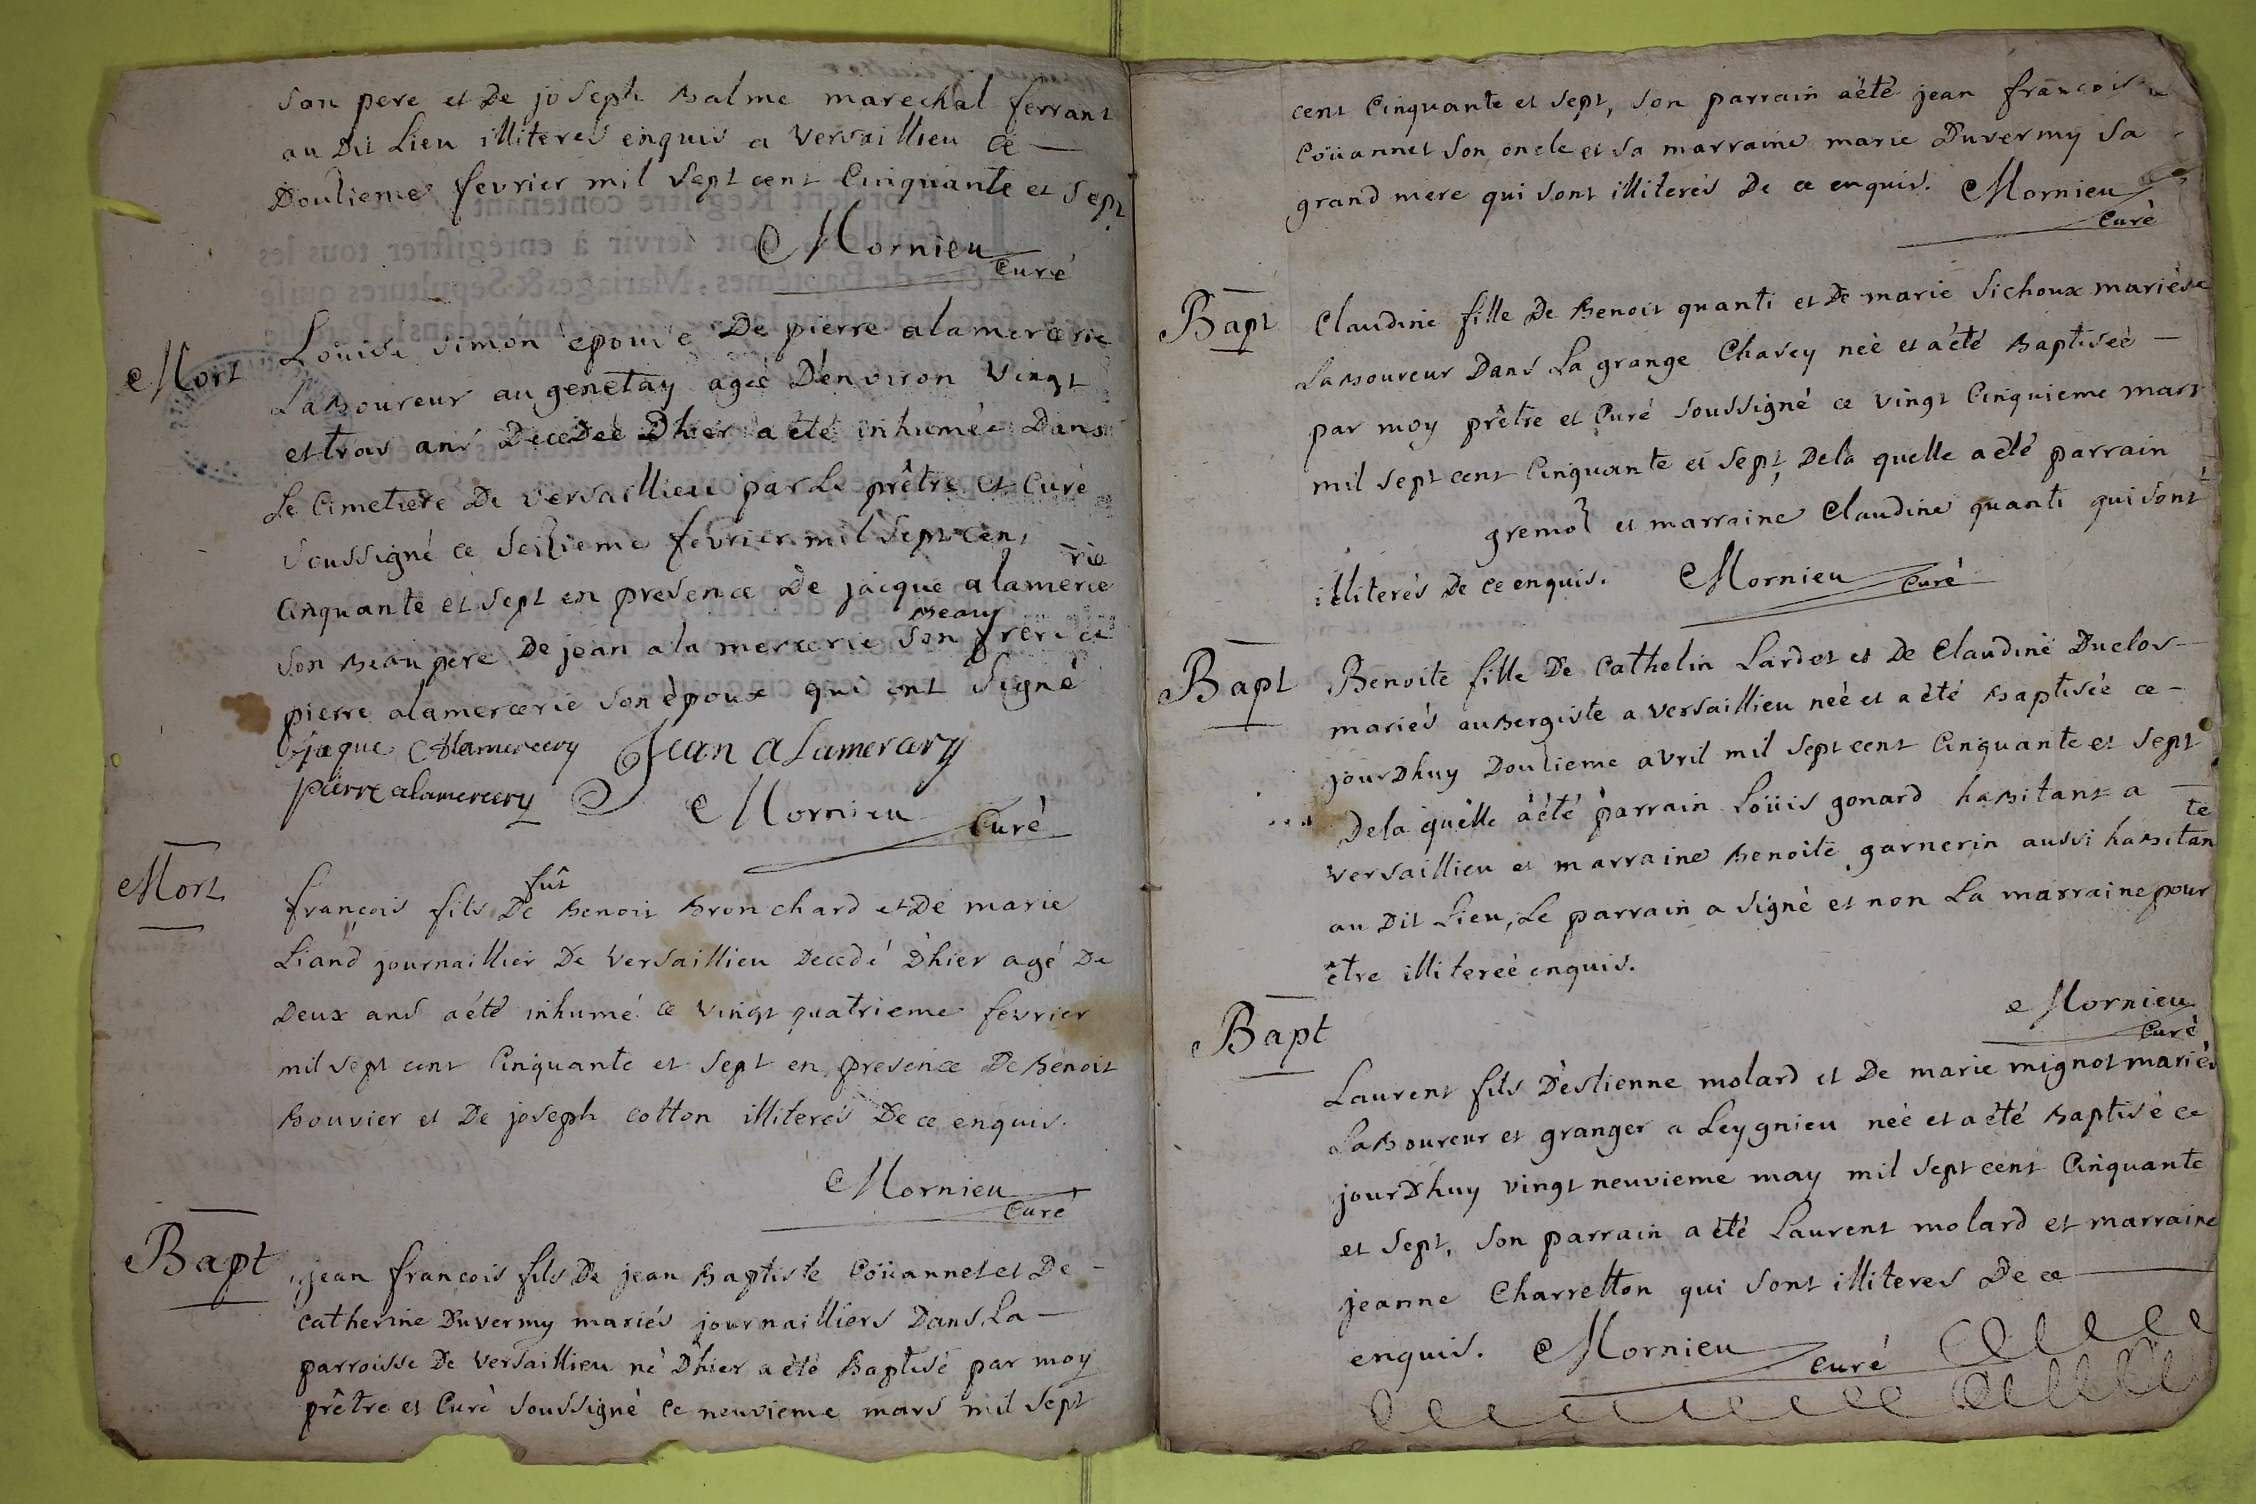 son pere et De joseph Balme marechal ferrant
au Dit Lieu illiteres enquis a Versaillieu ce
Douzieme fevrier mil sept cent Cinquante et sept
Mornieu
Curé
Mort
Loüise simon épouse De pierre alamercerie
Laboureur au genetay ageé D'environ Vingt
et trois ans Decedeé Dhier a été inhumée Dans
Le Cimetiere De versaillieu par Le prêtre et Curé
soussigné ce seizieme fevrier mil sept cent
rie
Cinquante et sept en presence De jacque alamerce
Beau
son Beau pere De jean alamercerie son frere et
pierre alamercerie son époux qui ont signé
jaque Alamercery Jean ALamercery
pierre alamercery
Mornieu
Curé
Mort
fut
francois fils De Benoit Bronchard et De marie
Liand journaillier De Versaillieu Decedé Dhier agé De
Deux ans a été inhumé ce vingt quatrieme fevrier
mil sept cent Cinquante et sept en presence De Benoit
Bouvier et De joseph cotton illiterés De ce enquis.
Mornieu
Curé
Bapt
jean francois fils De jean Baptiste Coüannet et De
catherine Duvermy mariés journailliers Dans La
parroisse De Versaillieu né Dhier a été Baptisé par moy
prêtre et Curé soussigné ce neuvieme mars mil sept
cent Cinquante et sept, son parrain a été jean francois
Coüannet son oncle et sa marraine marie Duvermy sa
grand mere qui sont illiterés De ce enquis. Mornieu
Curé
Bapt
Claudine fille De Benoit quanti et De marie Sichoux mariés
Laboureur Dans La grange Chasey neé et a été Baptiseé
par moy prêtre et Curé soussigné ce vingt Cinquieme mars
mil sept cent Cinquante et sept, De la quelle a été parrain
gremot et marraine Claudine quanti qui sont
illiterés De ce enquis. Mornieu
Curé
Bapt
Benoite fille De Cathelin Lardet et De Claudine Duclos
mariés aubergiste a versaillieu neé et a été Baptisée ce
jourDhuy Douzieme avril mil sept cent Cinquante et sept
De la quelle a été parrain Loüis gonard habitant a
te
versaillieu et marraine Benoite garnerin aussi habitan
au Dit Lieu, Le parrain a signé et non La marraine pour
être illitereé enquis.
Mornieu
Curé
Bapt
Laurent fils D'estienne molard et De marie mignot mariés
Laboureur et granger a Leygnieu neé et a été Baptisé ce
jourDhuy vingt neuvieme may mil sept cent Cinquante
et sept, son parrain a été Laurent molard et marraine
jeanne Charretton qui sont illiteres De ce
enquis. Mornieu
Curé